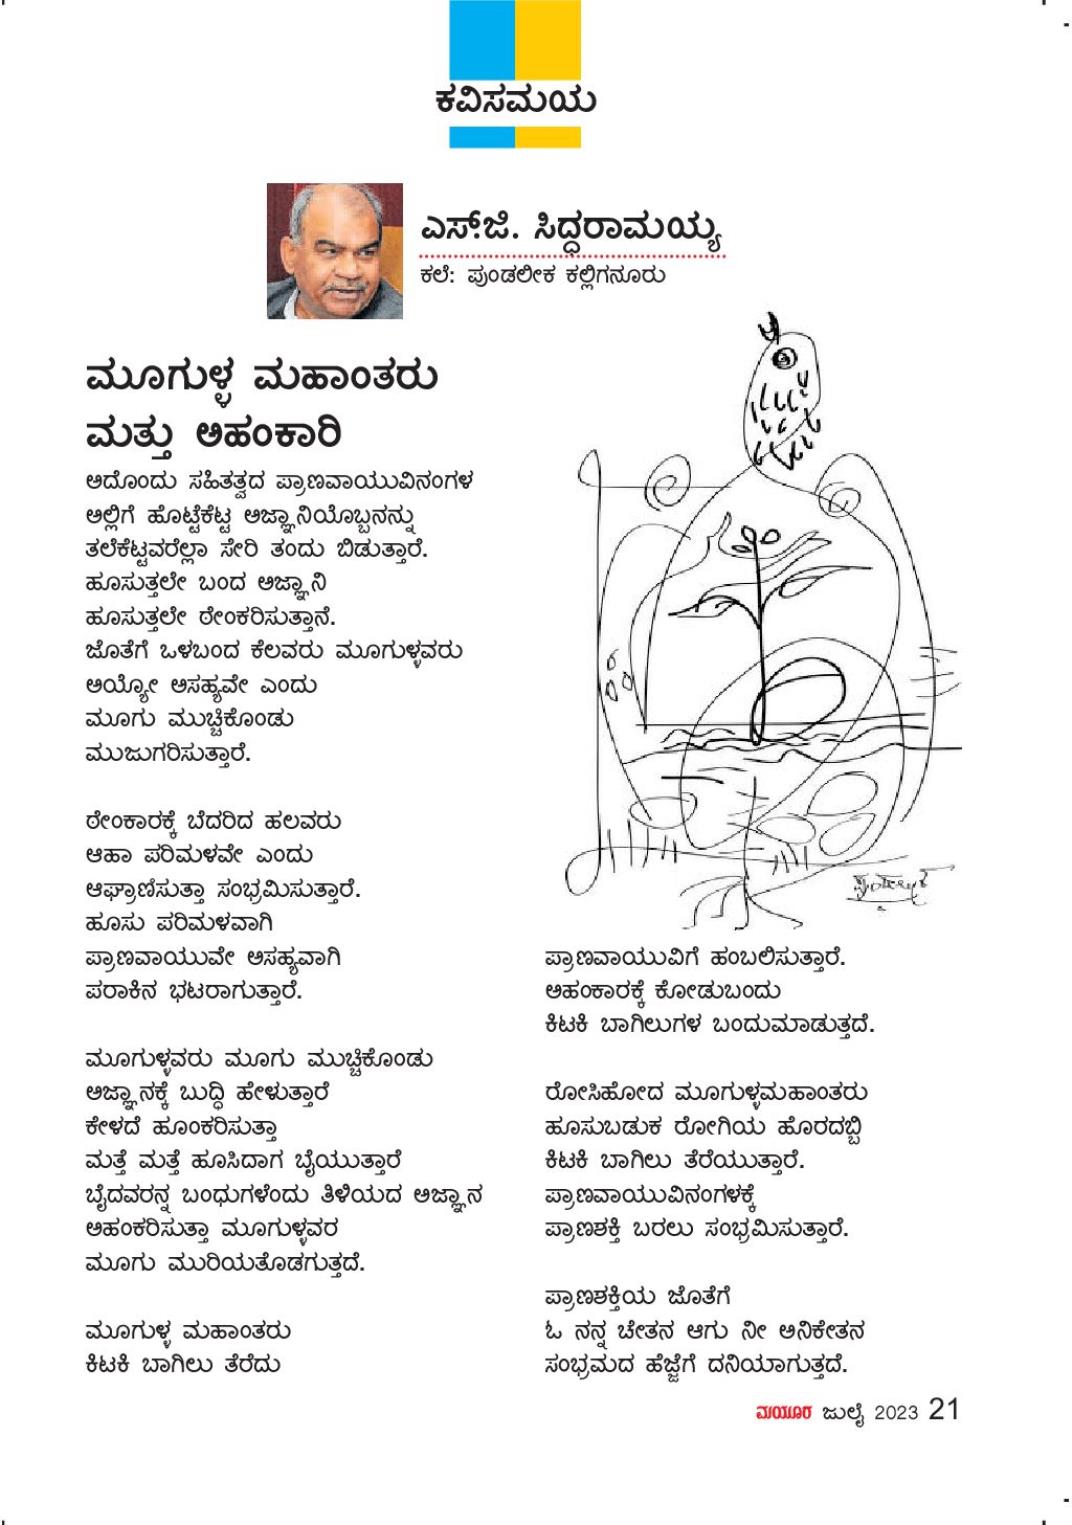 ಕವಿಸಮಯ
ಎಸ್.ಜಿ. ಸಿದ್ಧರಾಮಯ್ಯ
ಕಲೆ: ಪುಂಡಲೀಕ ಕಲ್ಲಿಗನೂರು
ಮೂಗುಳ್ಳ ಮಹಾಂತರು
ಮತ್ತು ಅಹಂಕಾರಿ
ಅದೊಂದು ಸಹಿತತ್ವದ ಪ್ರಾಣವಾಯುವಿನಂಗಳ
ಅಲ್ಲಿಗೆ ಹೊಟ್ಟೆಕೆಟ್ಟ ಅಜ್ಞಾನಿಯೊಬ್ಬನನ್ನು
ತಲೆಕೆಟ್ಟವರೆಲ್ಲಾ ಸೇರಿ ತಂದು ಬಿಡುತ್ತಾರೆ.
ಹೂಸುತ್ತಲೇ ಬಂದ ಅಜ್ಞಾನಿ
ಹೂಸುತ್ತಲೇ ಠೇಂಕರಿಸುತ್ತಾನೆ.
ಜೊತೆಗೆ ಒಳಬಂದ ಕೆಲವರು ಮೂಗುಳ್ಳವರು
ಅಯ್ಯೋ ಅಸಹ್ಯವೇ ಎಂದು
ಮೂಗು ಮುಚ್ಚಿಕೊಂಡು
ಮುಜುಗರಿಸುತ್ತಾರೆ.
ಠೇಂಕಾರಕ್ಕೆ ಬೆದರಿದ ಹಲವರು
ಆಹಾ ಪರಿಮಳವೇ ಎಂದು
ಆಘ್ರಾಣಿಸುತ್ತಾ ಸಂಭ್ರಮಿಸುತ್ತಾರೆ.
ಹೂಸು ಪರಿಮಳವಾಗಿ
ಪ್ರಾಣವಾಯುವೇ ಅಸಹ್ಯವಾಗಿ
ಪರಾಕಿನ ಭಟರಾಗುತ್ತಾರೆ.
ಮೂಗುಳ್ಳವರು ಮೂಗು ಮುಚ್ಚಿಕೊಂಡು
ಅಜ್ಞಾನಕ್ಕೆ ಬುದ್ಧಿ ಹೇಳುತ್ತಾರೆ
ಕೇಳದೆ ಹೂಂಕರಿಸುತ್ತಾ
ಮತ್ತೆ ಮತ್ತೆ ಹೂಸಿದಾಗ ಬೈಯುತ್ತಾರೆ
ಬೈದವರನ್ನ ಬಂಧುಗಳೆಂದು ತಿಳಿಯದ ಅಜ್ಞಾನ
ಅಹಂಕರಿಸುತ್ತಾ ಮೂಗುಳ್ಳವರ
ಮೂಗು ಮುರಿಯತೊಡಗುತ್ತದೆ.
ಮೂಗುಳ್ಳ ಮಹಾಂತರು
ಕಿಟಕಿ ಬಾಗಿಲು ತೆರೆದು
ಪುಂಡಲೀಕ
ಪ್ರಾಣವಾಯುವಿಗೆ ಹಂಬಲಿಸುತ್ತಾರೆ.
ಅಹಂಕಾರಕ್ಕೆ ಕೋಡುಬಂದು
ಕಿಟಕಿ ಬಾಗಿಲುಗಳ ಬಂದುಮಾಡುತ್ತದೆ.
ರೋಸಿಹೋದ ಮೂಗುಳ್ಳಮಹಾಂತರು
ಹೂಸುಬಡುಕ ರೋಗಿಯ ಹೊರದಬ್ಬಿ
ಕಿಟಕಿ ಬಾಗಿಲು ತೆರೆಯುತ್ತಾರೆ.
ಪ್ರಾಣವಾಯುವಿನಂಗಳಕ್ಕೆ
ಪ್ರಾಣಶಕ್ತಿ ಬರಲು ಸಂಭ್ರಮಿಸುತ್ತಾರೆ.
ಪ್ರಾಣಶಕ್ತಿಯ ಜೊತೆಗೆ
ಓ ನನ್ನ ಚೇತನ ಆಗು ನೀ ಅನಿಕೇತನ
ಸಂಭ್ರಮದ ಹೆಜ್ಜೆಗೆ ದನಿಯಾಗುತ್ತದೆ.
ಮಯೂರ ಜುಲೈ 2023 21